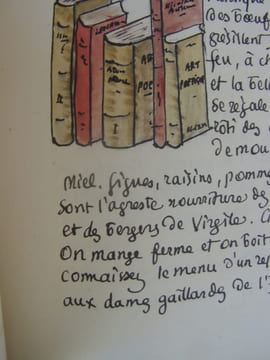 des bœufs
grésillent
feu, à ch
et la bell
se régale
rôti des
de mou
ART
POETIQUE
Miel, figues, raisins, pomme
Sont l'agreste nourriture de
et des bergers de Virgile. C
On mange ferme et on boit
connaissez le menu d'un rep
aux dames gaillardes de l'I